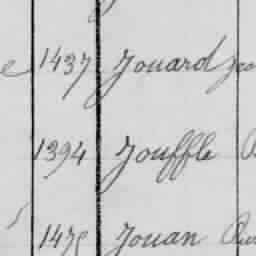 1437 Jouard
1394 Jouffle
1475 Jouan